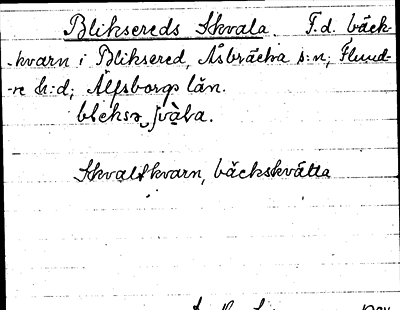 Bliksereds Skvala. F.d. bäck-
-kvarn i Bliksered, Åsbräcka s:n; Flund-
-re h:d; Älfsborgs län.
Skvaltkvarn, bäckskvätta